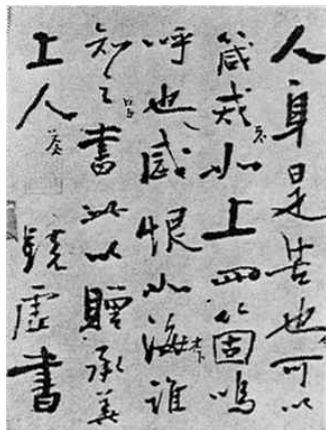 人身是苦也可以
箴戒如上四個嗚
呼也感恨如海誰
知之書此以贈承
上人 鏡虛書